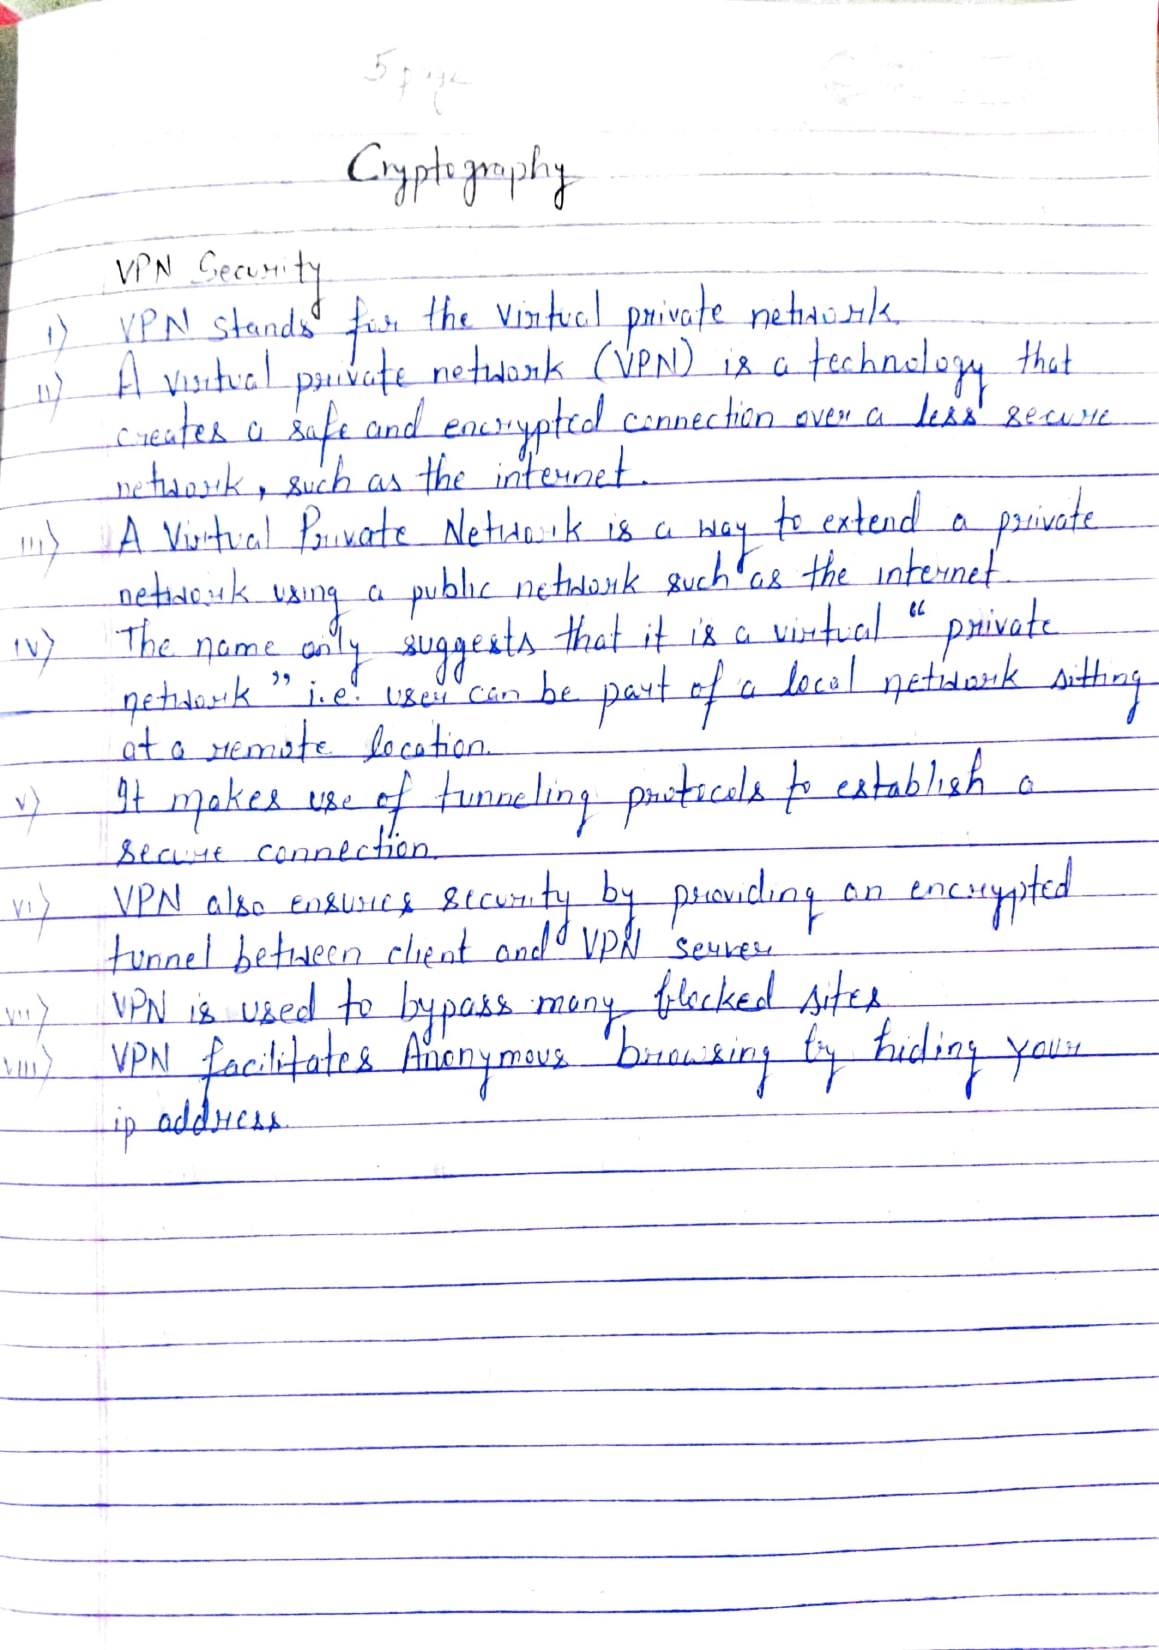 5 page
Cryptography
VPN Security
i) VPN stands for the virtual private network.
ii) A virtual private network (VPN) is a technology that
creates a safe and encrypted connection over a less secure
network, such as the internet.
iii) A Virtual Private Network is a way to extend a private
network using a public network such as the internet.
iv) The name only suggests that it is a virtual "private
network" i.e. user can be part of a local network sitting
at a remote location.
v) It makes use of tunneling protocols to establish a
secure connection.
vi) VPN also ensures security by providing an encrypted
tunnel between client and VPN server
vii) VPN is used to bypass many blocked sites
viii) VPN facilitates Anonymous browsing by hiding your
ip address.